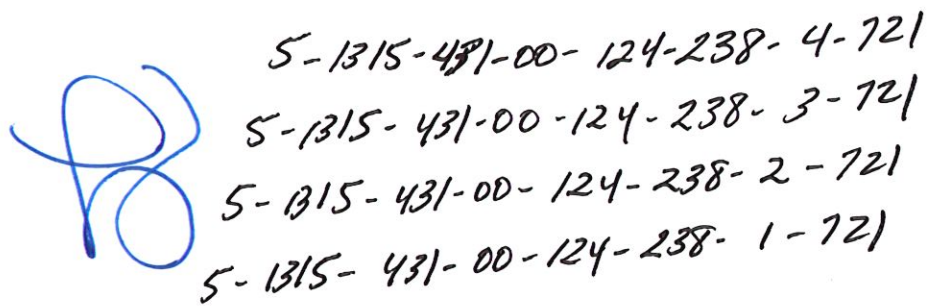 5-1315-431-00-124-238-4-721
5-1315-431-00-124-238-3-721
5-1315-431-00-124-238-2-721
5-1315-431-00-124-238-1-721